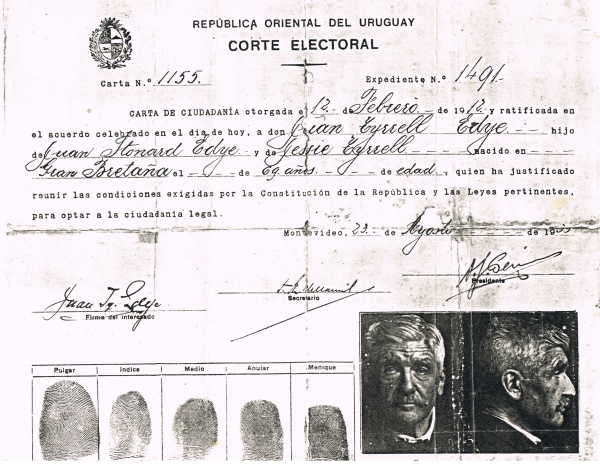 REPÚBLICA ORIENTAL DEL URUGUAY
CORTE ELECTORAL
Carta N.º 1155.
Expediente N.º 1491.
CARTA DE CIUDADANÍA otorgada el 12 de Febrero de 1912 y ratificada en
el acuerdo celebrado en el día de hoy, a don Juan Tyrrell Edye hijo
de Juan Stonard Edye y de Jessie Tyrrell nacido en
Gran Bretaña el de 69 años. de edad, quien ha justificado
reunir las condiciones exigidas por la Constitución de la República y las Leyes pertinentes,
para optar a la ciudadanía legal.
Montevideo, 23 de Agosto de 19
Juan Ty. Edye
Firma del interesado
Secretario
Presidente
Pulgar
Indice
Medio
Anular
Menique